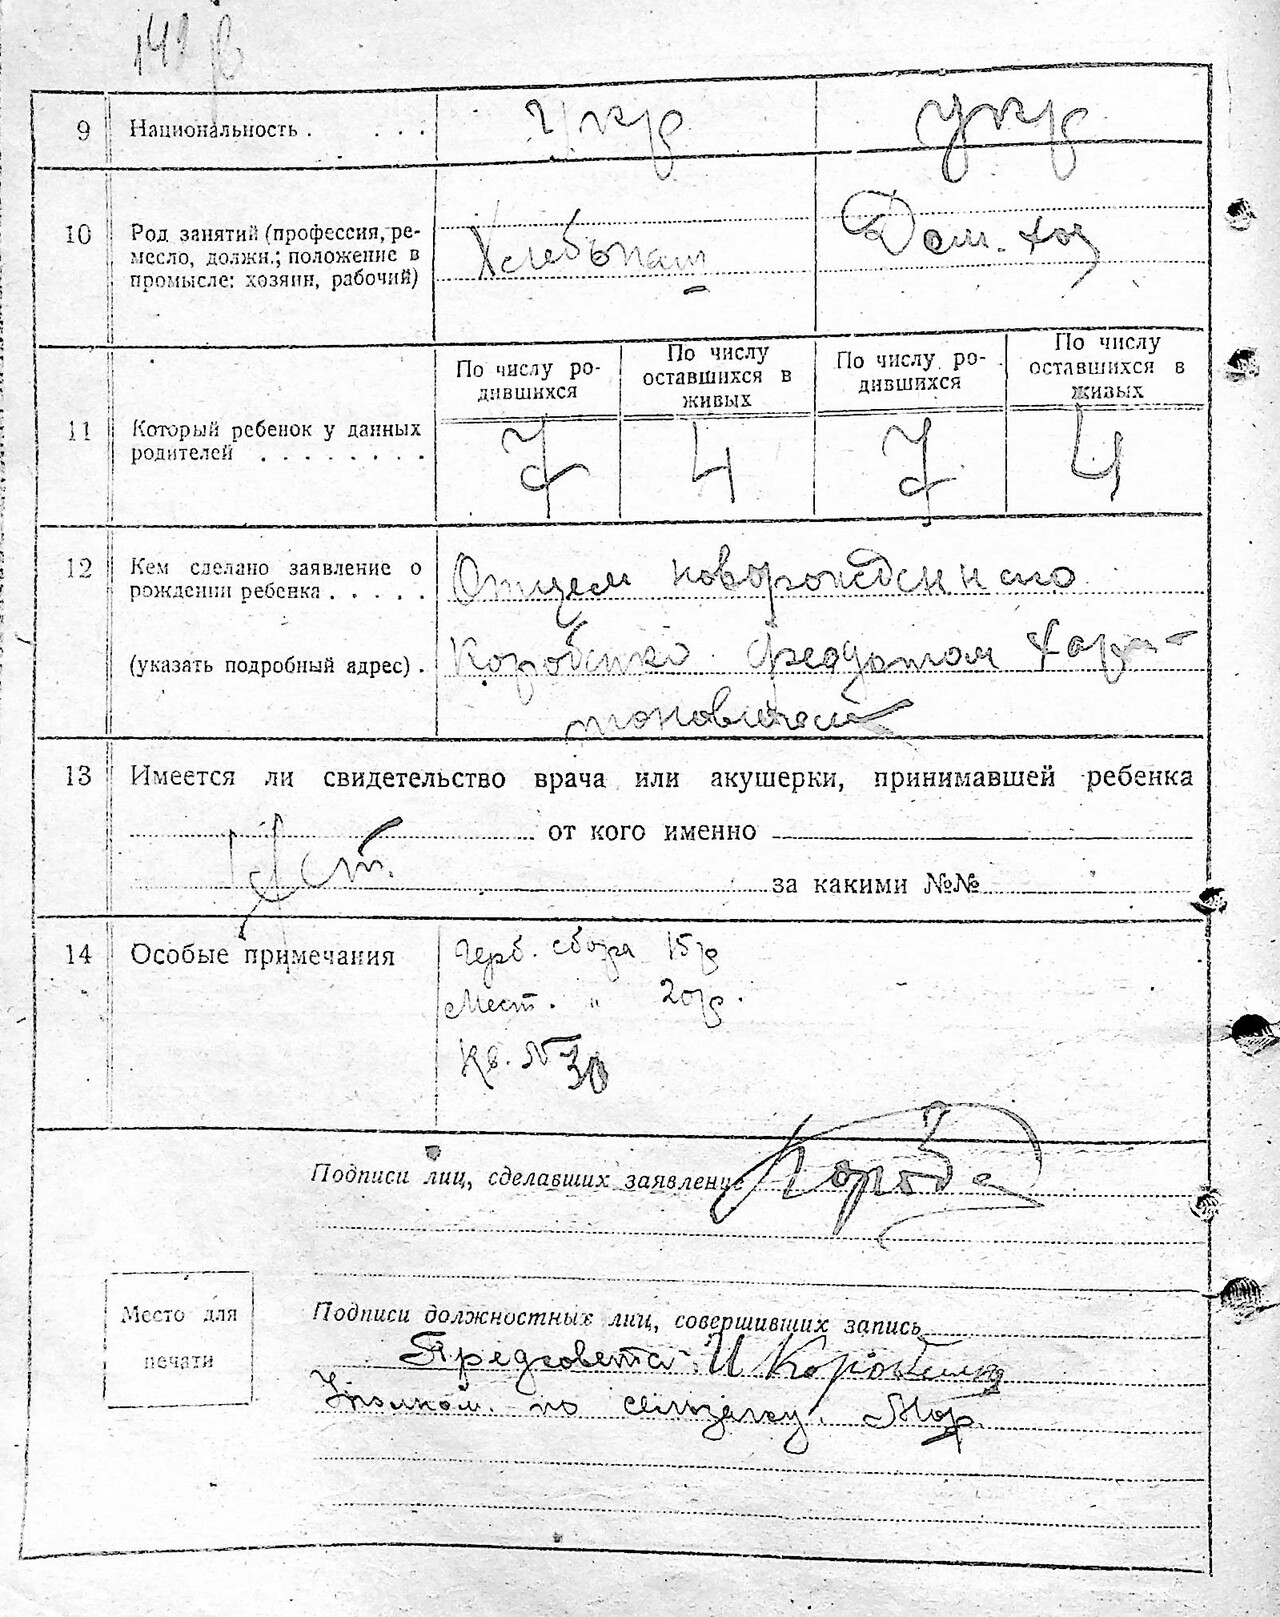 9 Национальность . . . . укр укр
10 Род занятий (профессия, ре-
месло, должн.; положение в
промысле: хозяин, рабочий)
Хлебопаш Дом. хоз
11 Который ребенок у данных
родителей . . . . . . . .
По числу ро-
дившихся
По числу
оставшихся в
живых
По числу ро-
дившихся
По числу
оставшихся в
живых
7 4 7 4
12 Кем сделано заявление о
рождении ребенка . . . . .
(указать подробный адрес) .
Отцем новорожденного
Коробенко Феодотом Хари-
тоновичем
13 Имеется ли свидетельство врача или акушерки, принимавшей ребенка
Нет от кого именно
за какими №№
14 Особые примечания
Герб. сбора 15 р
Мест. " 20 р.
Кв. № 30
Подписи лиц, сделавших заявление
Место для
печати
Подписи должностных лиц, совершивших запись
Предсовета И Коробенко
по